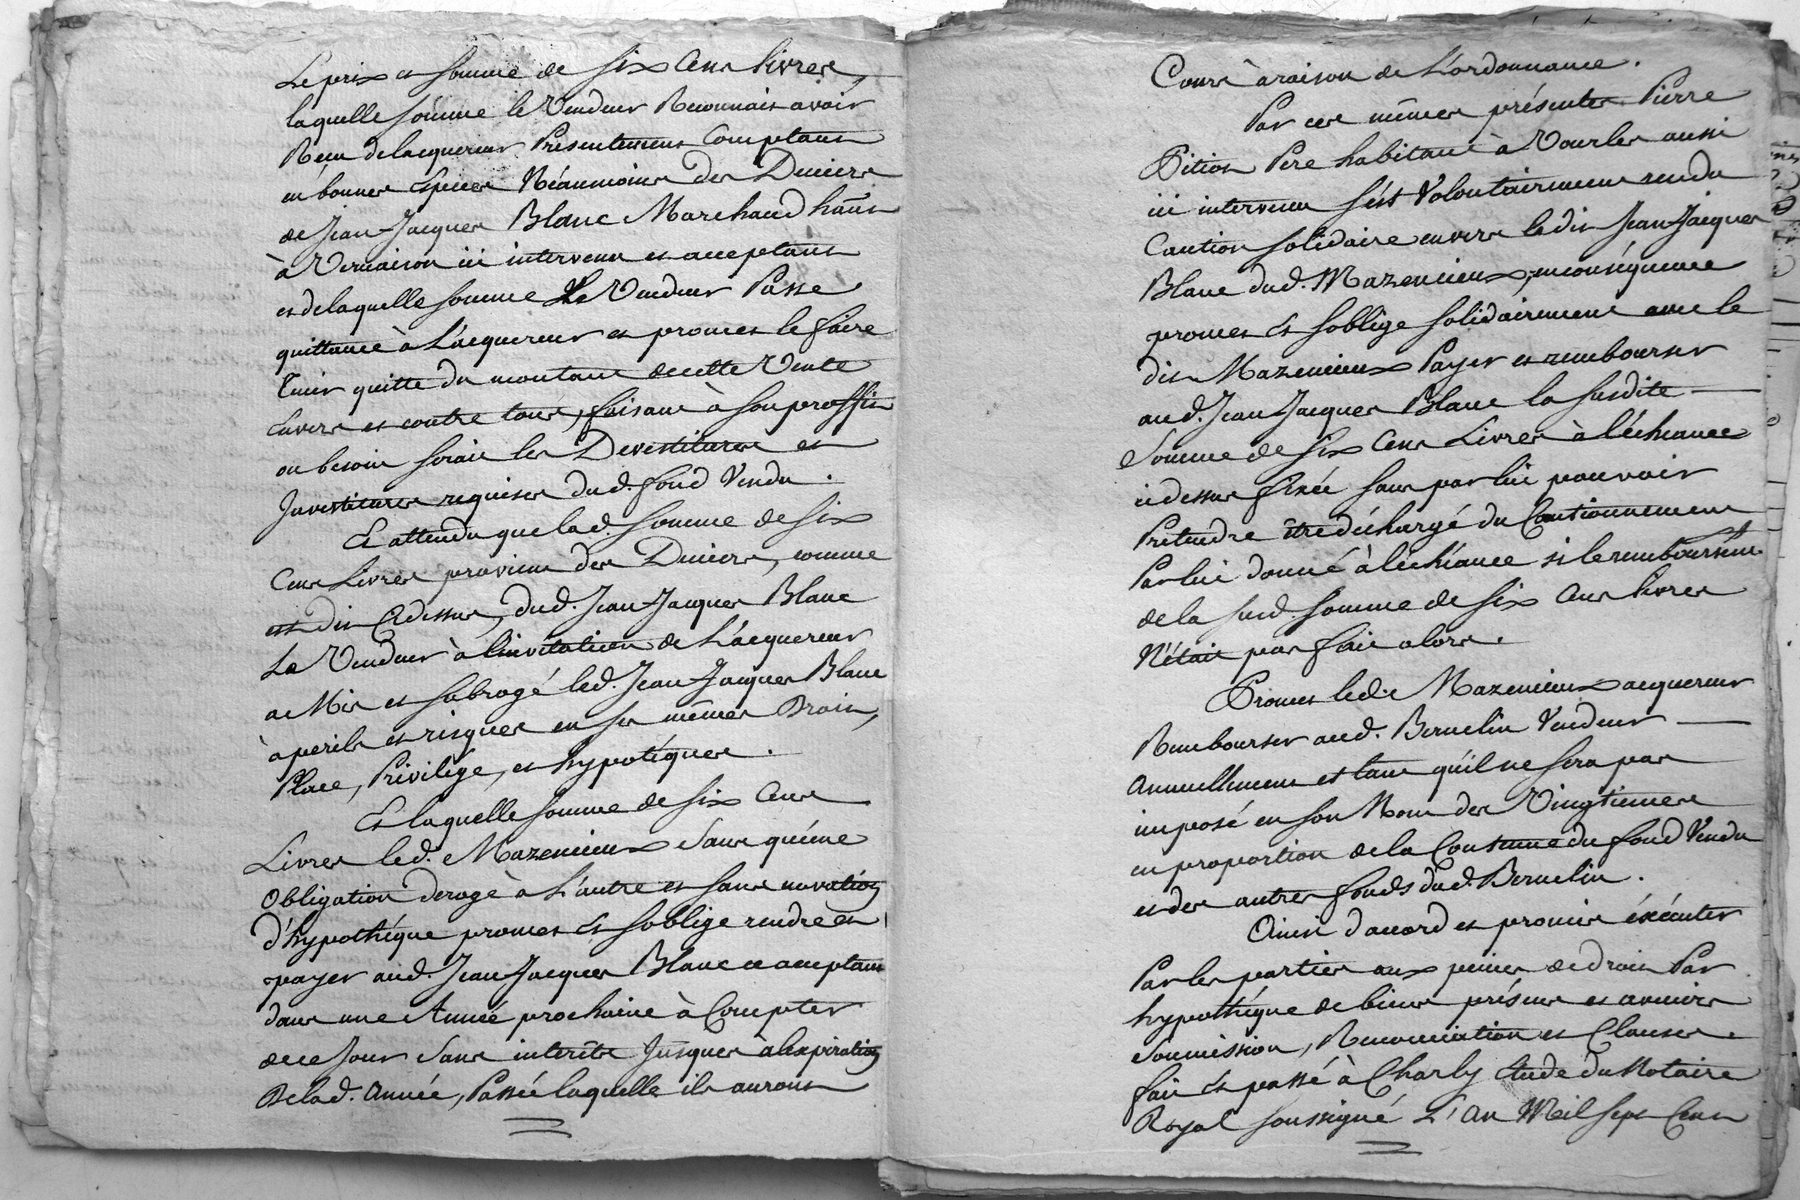 Le prix et somme de six cens livres,
laquelle somme le Vendeur Reconnait avoir
Reçu delacquereur Présentement Comptant
en bonnes especes Néanmoins des Deniers
de Jean-Jacques Blanc Marchand hãnt
à Vernaison ici intervenu et acceptant
et delaquelle somme Le Vendeur Passe
quittance à L'acquereur et promet le faire
tenir quitte du montant decette Vente
Envers et contre tous, faisant à son proffit
ou besoin serait les Devestitures et
Investitures requises dud. fond Vendu.
Et attendu que lad. somme de six
Cens Livres provient des Deniers, comme
est dit Cidessus, dud. Jean-Jacques Blanc
Le Vendeur à linvitation de L'acquereur
a Mis et subrogé led. Jean Jacques Blanc
à perils et risques en ses mêmes Droits,
Place, Privilége, et hypotéques.
Et laquelle somme de six Cens
Livres led. Mazencieux sans qu'une
Obligation deroge à L'autre et sans novation
d'hypothéque promet Et soblige rendre et
payer aud. Jean Jacques Blanc ce acceptant
dans une Année prochaine à Compter
de ce Jour sans interêts Jusques à lexpiration
De lad. Année, Passée laquelle ils auront
Cours à raison de L'ordonnance.
Par ces mêmes présentes Pierre
Pition Pere habitant à Vourles aussi
ici intervenu s'est Volontairement rendu
Caution solidaire envers ledit Jean-Jacques
Blanc dud. Mazencieux, enconséquence
promet Et soblige solidairement avec le
dit Mazencieux Payer et rembourser
aud. Jean Jacques Blanc la susdite
Somme de six Cens Livres à léchéance
cidessus fixée sans par lui pouvoir
Prétendre être déchargé du Cautionnement
Par lui donné à léchéance si le remboursemt.
de la susd. somme de six Cens livres
N'était pas fait alors.
Promet led. Mazencieux acquereur
Rembourser aud. Bernelin Vendeur
Annuellement et tant qu'il ne sera pas
imposé en son Nom des Vingtiemes
en proportion de la Contenue du fond Vendu
et des autres fonds dud. Bernelin.
Ainsi d'accord et promis éxécuter
Par les parties aux peines de droit Par
hypothéque de biens présens et avenirs
Soumission, Renonciation et Clauses.
fait Et passé à Charly Etude du Notaire
Royal soussigné L'an Mil sept Cens